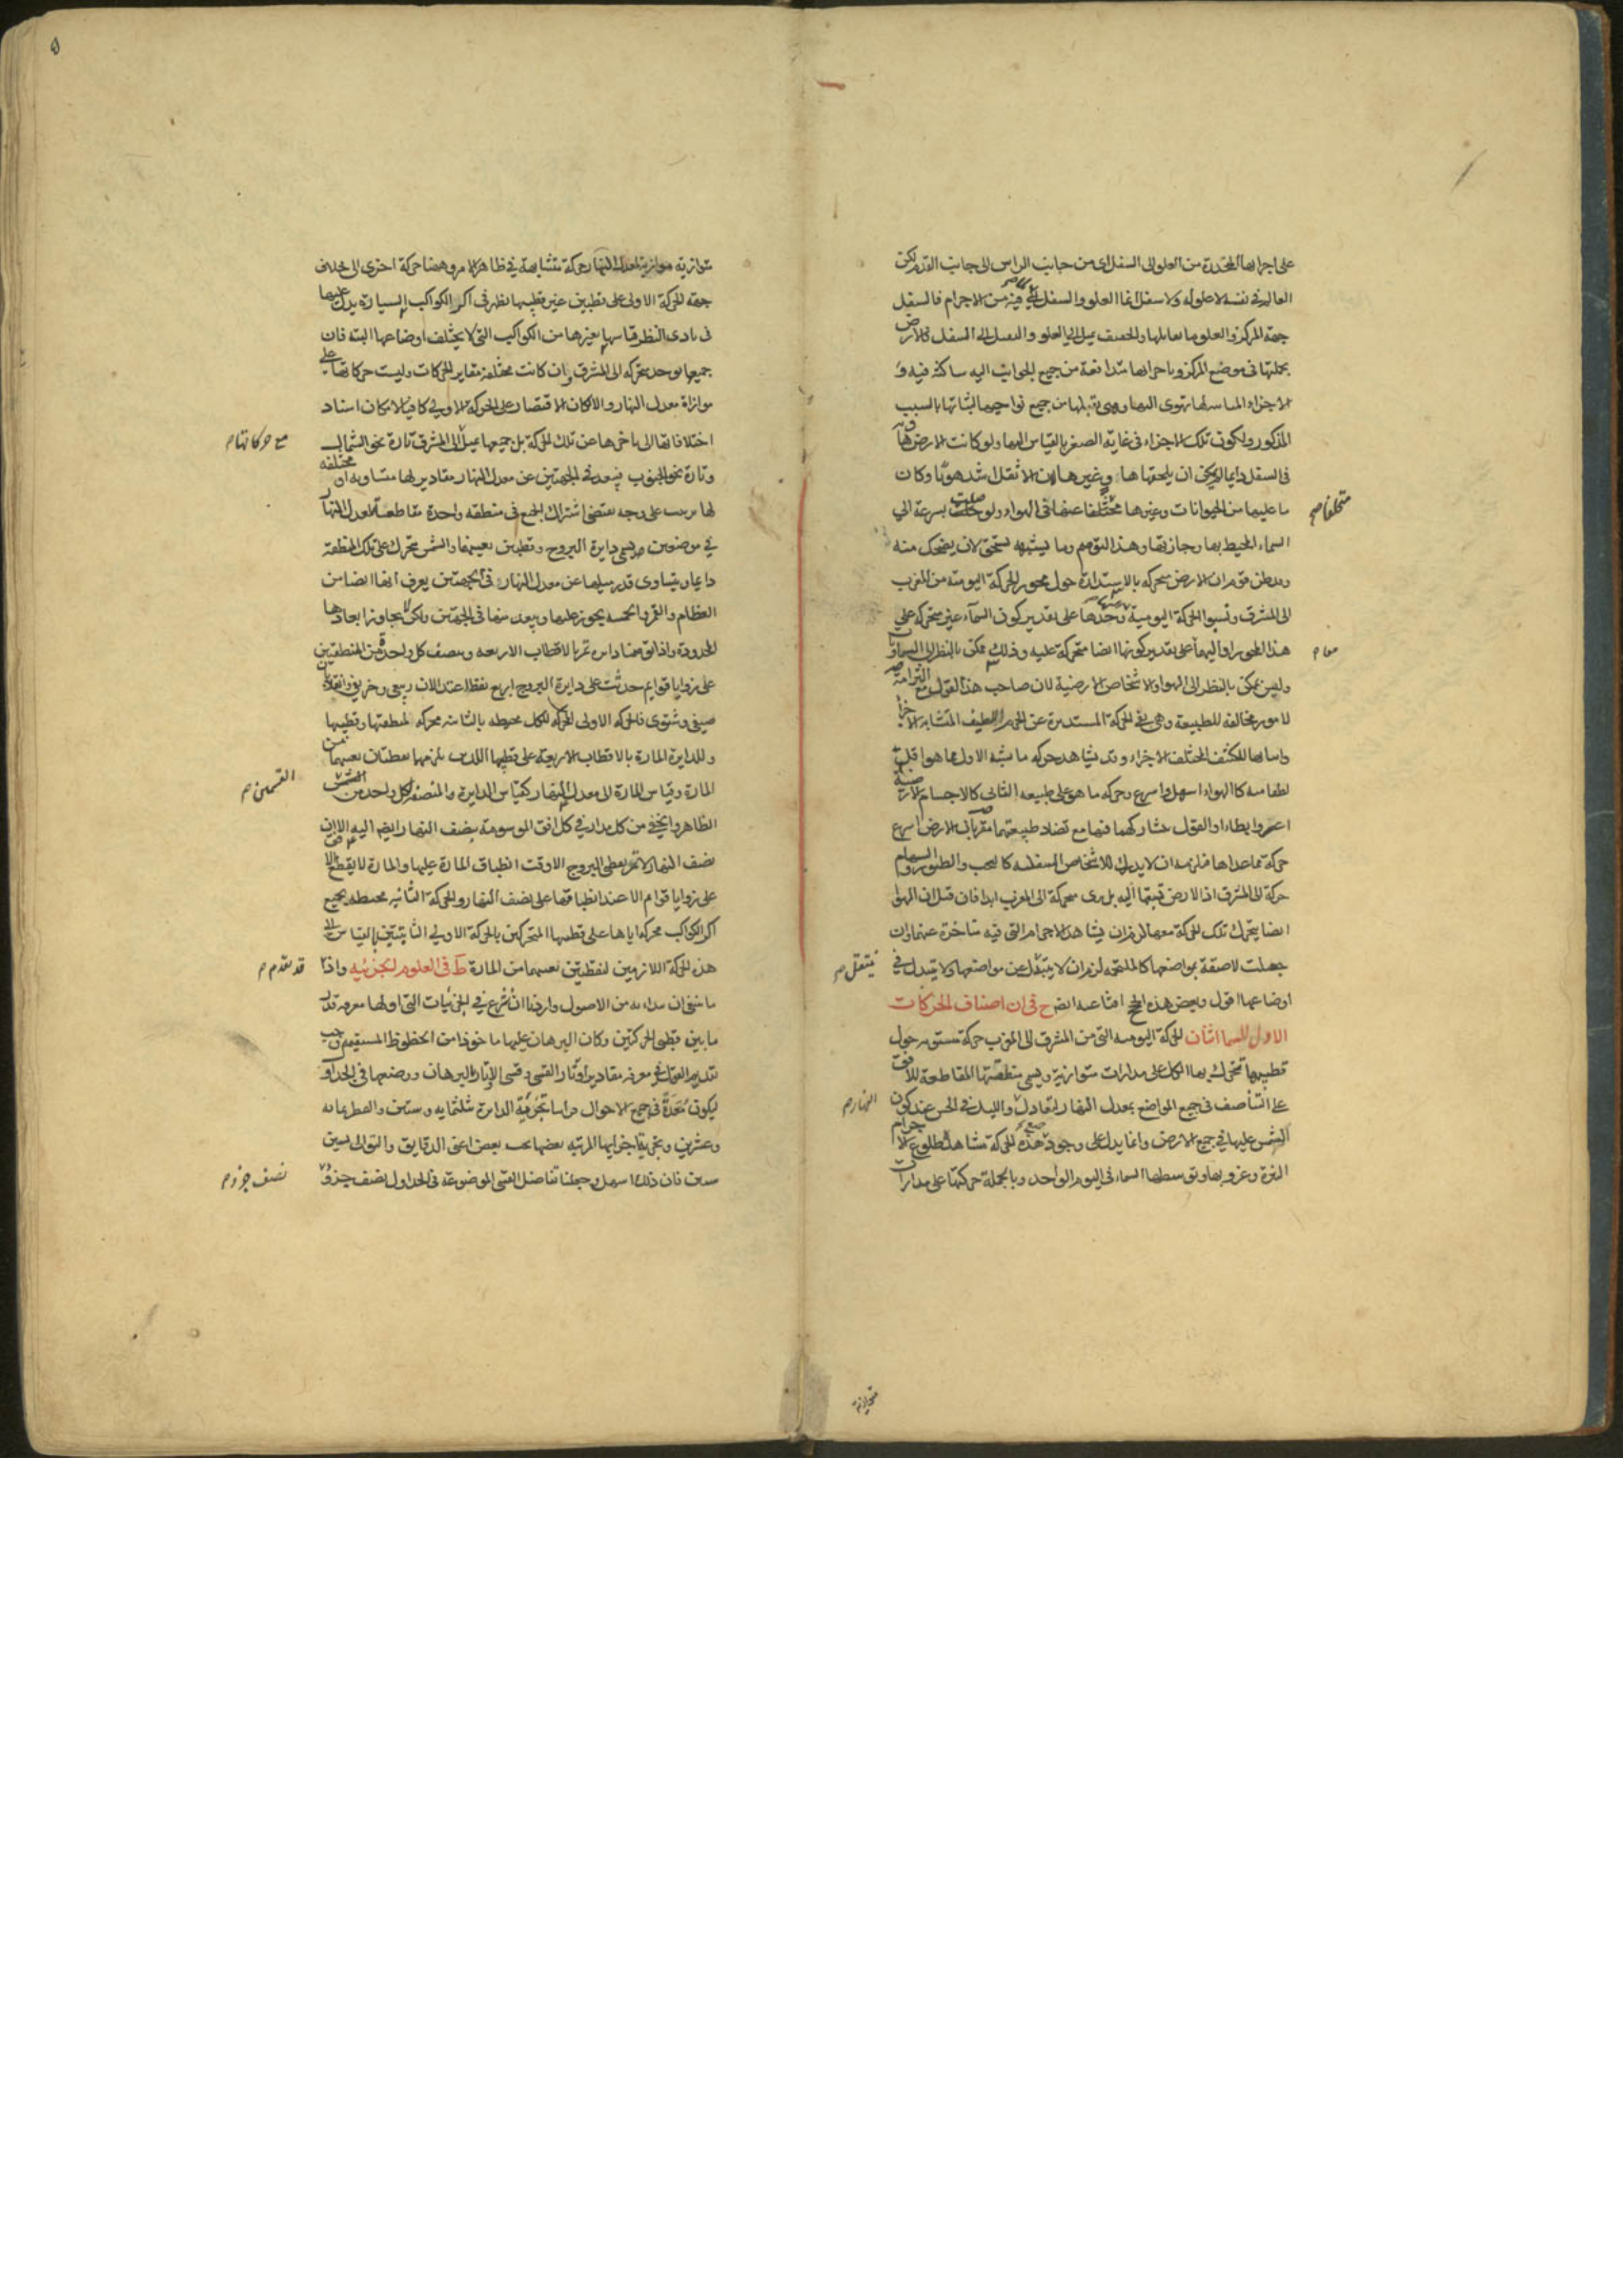 على اجزائها المتحددة من العلو الى السفل اى من جانب الراس الى جانب القدم لكن
العالم فى نفسه لا علو له ولا سفل انما العلو والسفل فيه من الاجرام فالسفل
جهة المركز والعلو ما يقابلها والخفيف يميل الى العلو والثقيل الى السفل فالارض
بجملتها فى موضع المركز وباجزائها متدافعة من جميع الجوانب اليه ساكنة فيه و
الاجزاء المماسة لها تهوى اليها وهى تقبلها من جميع نواحيها لثباتها بالسبب
المذكور ولكون تلك الاجزاء فى غاية الصغر بالقياس اليها ولو كانت الارض
فى السفل دايما لم يمكن ان يلحقها وغيرها لان الاثقل اشد هويا وكان
ما عليها من الحيوانات وغيرها مختلفا عنها فى الهواء ولو بسرعة الى
السماء المحيط بها وجازتها وهذا التوهم وما يشبهه يستحق لان يضحك منه
وقد ظن قوم ان الارض متحركة بالاستدارة حول محور الحركة اليومية من المغرب
الى المشرق ونسبوا الحركة اليومية وحدها على تقدير كون السماء غير متحركة على
هذا المحور او اليهما على تقدير كونها ايضا متحركة عليه وذلك ممكن بالنظر الى السماويات
وليس بممكن بالنظر الى الهواء والاشخاص الارضية لان صاحب هذا القول مع التزامه
لامور مخالفة للطبيعة وهى نفى الحركة المستديرة عن الجرم اللطيف المتشابه الاجزاء
واثباتها للكثيف المختلف الاجزاء وقد يشاهد حركة ما يشبه الاول مما هو اقل
لطافة كالهواء اسهل واسرع وحركة ما هو على طبيعة الثانى كالاجسام الارضية
اعسر وابطاء او القول بتشاركهما فيها مع تضاد طبيعتهما مقر بان الارض اسرع
حركة مما عداها فلزمه ان لا يدرك للاشخاص السفلية كالسحب والطيور والسهام
حركة الى المشرق اذ الارض تسبقها اليه بل يرى متحركة الى المغرب ابدا فان قيل ان الهواء
ايضا يتحرك تلك الحركة معها لزم ان يشاهد الاجرام التى فيه متاخرة عنهما وان
جعلت لاصقة بمواضعها كالملتحمة لزم ان لا يتبدل عن مواضعها ولا يتبدل فى
اوضاعها اقول وبعض هذه الحجج اقناعية ايضا ح فى ان اصناف الحركات
الاول للسما اثنان الحركة اليومية التى من المشرق الى المغرب حركة مستوية حول
قطبيها تتحرك بها الكل على مدارات متوازية ويسمى منطقتها المقاطعة للافق
على التناصف فى جميع المواضع بمعدل النهار لتعادل والليل فى الحس عند كون
الشمس عليها فى جميع الارض وانما يدل على وجود هذه الحركة مشاهدة طلوع الاجرام
النيرة وغروبها وتوسطها السماء فى اليوم الواحد وبالجملة حركتها على مدارات
متخلفا صح
معا م
ينتقل صح
النهار م
متوازية
٥
متوازية موازية لمعدل النهار حركة متشابهة فى ظاهر الامر وهنا حركة اخرى الى خلاف
جهة الحركة الاولى على قطبين غير قطبيها تظهر فى اكر الكواكب السيارة يدل عليها
فى بادى النظر قياسها بغيرها من الكواكب التى لا يختلف اوضاعها البتة فان
جميعها يوجد متحركة الى المشرق وان كانت مختلفة مقادير الحركات وليست حركاتها على
موازاة معدل النهار والا لكان الاقتصار على الحركة الاولى كافيا لامكان اسناد
اختلافاتها الى تاخرها عن تلك الحركة بل جميعها يميل الى المشرق تارة نحو الشمال
وتارة نحو الجنوب فيبعد فى الجهتين عن معدل النهار مقادير لها متساوية او مختلفة
لها ترتيب على وجه يقتضى اشتراك الجميع فى منطقة واحدة مقاطعة لمعدل النهار
فى موضعين وتسمى دايرة البروج وقطبين بعينهما والشمس تتحرك على تلك المنطقة
دايما وبتساوى قدر ميلها عن معدل النهار فى الجهتين يعرف انها ايضا من
العظام والقمر والخمسة يجوز عليها ويبعد عنها فى الجهتين ولكن لا يجاوز ابعادها
المحدودة واذا توهمنا دايرة تمر بالاقطاب الاربعة وينصف كل واحدة من المنطقتين
على زوايا قوايم حدثت على دايرة البروج اربع نقط اعتدالان ربيعى وخريفى وانقلابان
صيفى وشتوى فالحركة الاولى المحركة للكل محيطة بالثانية محركة لمنطقتها وقطبيها
وللدايرة المارة بالاقطاب الاربعة على قطبيها اللذين يلزمهما نقطتان بعينهما من
المارة وقياس المارة الى معدل النهار كقياس الدايرة والمنصفة لكل واحد من
الظاهر والخفى من كل مدار فى كل افق الموسومة بنصف النهار ايضا اليه الا ان
نصف النهار لا تمر بقطبى البروج الا وقت انطباق المارة عليها والمارة لا يقطع الافق
على زوايا قوايم الا عند انطباقها على نصف النهار والحركة الثانية محيطة بجميع
اكر الكواكب محركة اياها على قطبيها المتحركين بالحركة الاولى الثابتين بالقياس الى
هذه الحركة اللازمين لنقطتين بعينهما من المارة ط فى العلوم الجزئية واذا
ما ينبغى ان من الاصول واردنا ان نشرع فى الجزئيات التى اولها معرفة قدر
ما بين قطبى الحركتين وكان البرهان عليها ماخوذا من الخطوط المستقيمة وجب
تقديم القول فى معرفة مقادير اوتار القسى وقسى الاوتار بالبرهان ووضعها فى الجداول
ليكون معدة فى جميع الاحوال فراينا تجزئة الدايرة بثلثماية وستين والقطر بماية
وعشرين وتجزئة اجزائها المرتبة بعضها تحت بعض اعنى الدقايق والثوانى بستين
ستين فان ذلك اسهل وجعلنا تفاضل القسى الموضوعة فى الجداول نصف جزو
مع حركاتها م
القسمين م
قد تقدم م
نصف جزء م